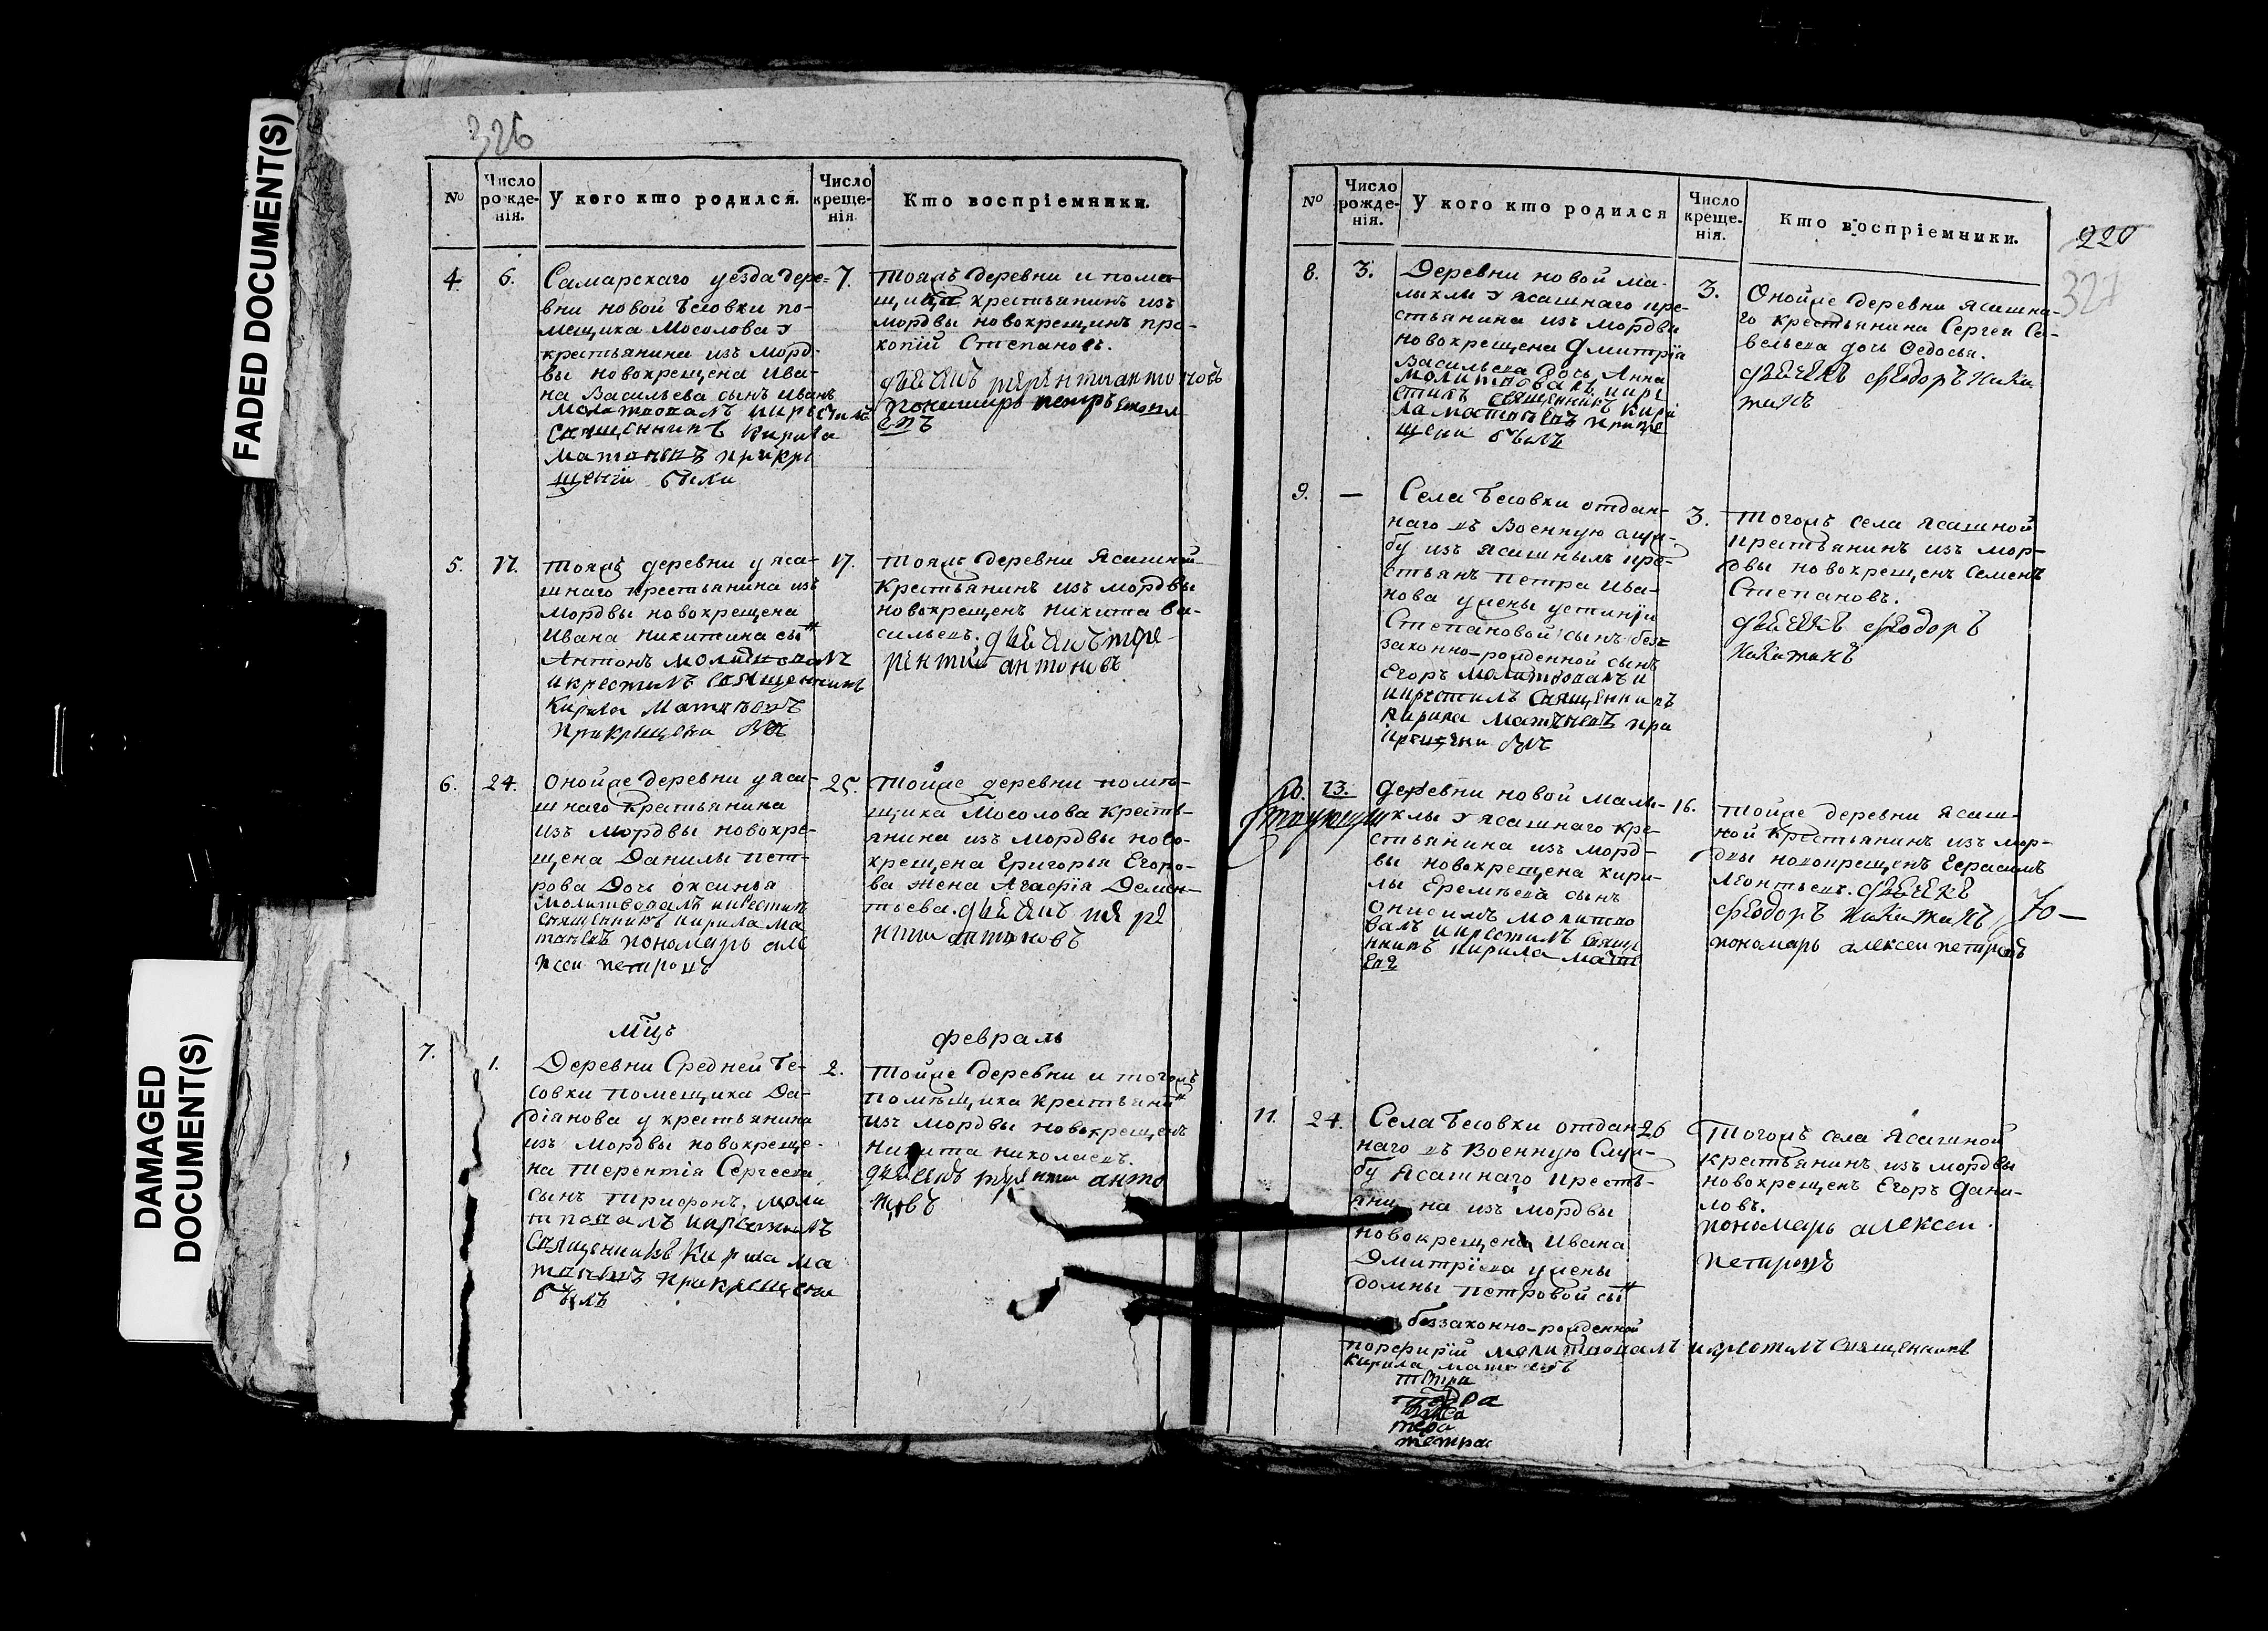 FADED DOCUMENT(S)
DAMAGED DOCUMENT(S)
326
№
Число рожде-нія.
У кого кто родился.
Число креще-нія
Кто воспріемники.
4. 6.
Самарскаго уезда дере-
вни новой Бесовки по-
мещика Мосолова у
крестьянина изъ морд-
вы новокрещена Ива-
на Васильева сынъ Иванъ
молитвовалъ икрестилъ
священникъ Кирила
Матвѣевъ прикре
щении были
7.
Тояжъ деревни и поме-
щика крестьянинъ изъ
мордвы новокрещинъ про-
копій Степановъ.
дьячекъ терентиантоновъ
пономарь петръ
5. 17.
тояжъ деревни у яса-
шнаго крестьянина изъ
мордвы новокрещена
Ивана Никитина сы н
Антонъ молитвовалъ
икрестилъ священникъ
Кирила Матвѣевъ
прикрещени
17.
Тояжъ деревни Ясашной
крестьянинъ изъ мордвы
новокрещенъ Никита Ва-
сильевъ. дьячекъ тере-
рентий антоновъ
6. 24.
Онойже деревни у яса-
шнаго крестьянина
изъ мордвы новокре-
щена Данилы пет-
рова Дочь оксинья
молитвовалъ икрестилъ
священникъ Кирила Ма
твѣевъ пономарь але
ксеи петровъ
25.
Тойже деревни помѣ-
щика Мосолова крестъ-
янина изъ мордвы ново-
крещена Григорья Егоро-
ва жена Агафія Демен-
тьева. дьячекъ те ре
нти антоновъ
мцъ февраль
7. 1.
Деревни Средней Бе-
совки помещика Да-
діанова у крестьянина
изъ мордвы новокреще-
на Терентія Сергеева
сынъ трифонъ. моли
твовалъ икрестилъ
Священникъ Кирила Ма
твѣевъ прикрещени
былъ
2.
Тойже деревни и тогожъ
помѣщика крестьянин
изъ мордвы новокрещенъ
Никита Николаевъ.
дьячекъ терентии анто
новъ
№
Число рожде-нія.
У кого кто родился
Число креще-нія.
Кто воспріемники.
220
327
8. 3.
Деревни новой ма-
лыклы у ясашнаго кре-
стьянина изъ мордвы
новокрещена Дмитрія
Васильева дочь Анна
молитвовалъ икре
стилъ священникъ Кири
ла матвѣевъ прикре
щени былъ
3.
Онойже деревни ясашна-
го крестьянина Сергея Са-
вельева дочь Федосья.
дьячекъ феодоръ Ники
тинъ
9. —
Села Бесовки отдан-
наго въ Военную служ-
бу изъ ясашныхъ кре-
стьянъ петра Ива-
нова у жены устиніи
Степановой сынъ без-
законно-рожденной сынъ
Егоръ молитвовалъ и
икрестилъ священникъ
Кирила матвѣевъ при
крещени былъ
3.
Тогожъ села ясашной
крестьянинъ изъ мор-
двы новокрещенъ семенъ
Степановъ.
дьячекъ феодоръ
Никитинъ
10. 13.
деревни новой малы-
клы у ясашнаго кре-
стьянина изъ морд-
вы новокрещена кири-
лы Еремѣева сынъ
Онисимъ молитво
валъ икрестилъ свяще
нникъ Кирила матвѣ
евъ
16.
Тойже деревни ясаш-
ной крестьянинъ изъ мор-
двы новокрещенъ Герасимъ
Леонтьевъ. дьячекъ
феодоръ Никитинъ
пономарь алексеи петровъ
70—
11. 24.
Села Бесовки отдан
наго въ Военную Служ-
бу Ясашнаго кресть-
янина изъ мордвы
новокрещена Ивана
Дмитріева у жены
домны петровой сы н
беззаконно-рожденной
порфирій молитвовалъ икрестилъ священникъ
Кирила матвѣевъ
26
Тогожъ села ясашной
крестьянинъ изъ мордвы
новокрещенъ Егоръ Дани-
ловъ.
пономарь алексеи
петровъ